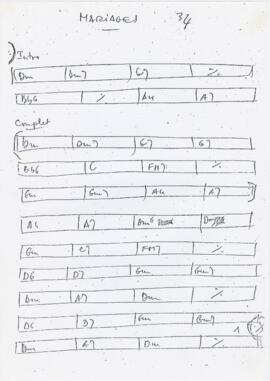 MARIAGES 34
Intro
Dm | Dm7 | G7 | ٪
Bb6 | ٪ | A4 | A7
Complet
Dm | Dm7 | G7 | G7
Bb6 | C | FM7 | ٪
Gm | Gm7 | A4 | A7
A4 | A7 | Dm6
Gm | C7 | FM7 | ٪
D6 | D7 | Gm | Gm7
Dm | A7 | Dm | ٪
D6 | D7 | Gm | Gm7 1
Dm | A7 | Dm | ٪